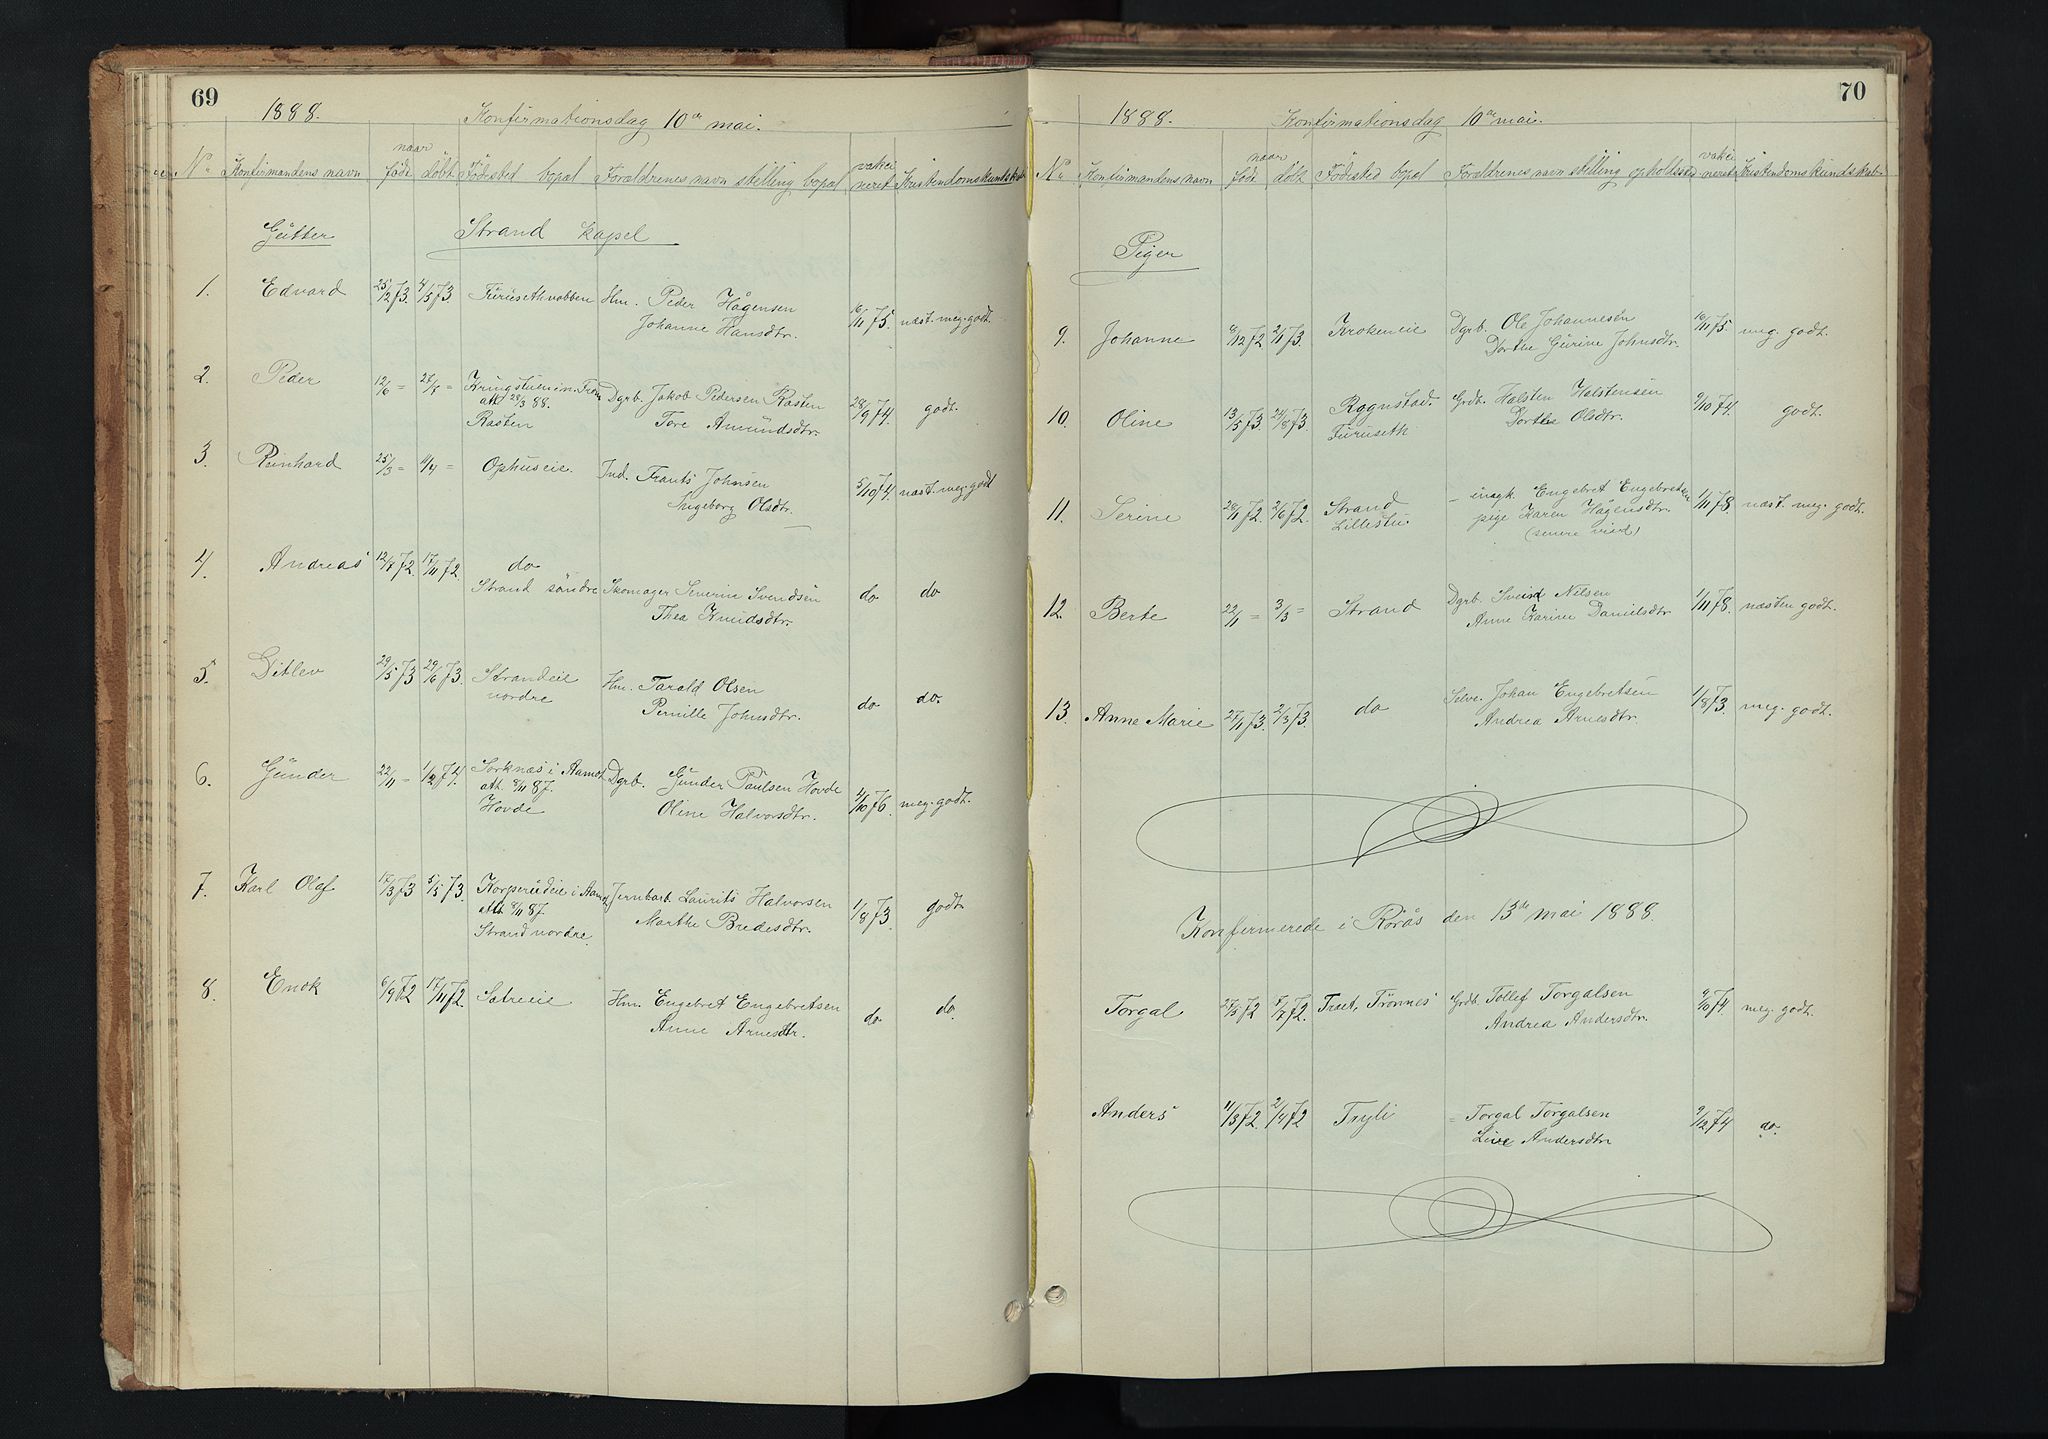 69
1888. Konfirmationsdag 10de mai.
naar vakci
No Konfirmandens navn født døbt Fødested bopæl Forældrenes navn stilling bopæl neret Kristendomskundskab
Gutter Strand kapel
1. Edvard 25/12 73. 4/5 73. Furusethvobben Hm. Peder Hågensen 16/11 75. næst. meg. godt.
Johanne Hansdtr.
2. Peder 12/6 = 27/7 = Kringstuen i n. Tron Dgrb. Jakob Pedersen Rasten 28/9 74. godt.
att. 28/3 88.
Rasten Tore Amundsdtr.
3. Reinhard 25/3 = 11/4 = Ophuseie. Ind. Frants Johnsen 5/10 74. næst. meg. godt
Ingeborg Olsdtr.
4. Andreas 12/7 72. 17/11 72. do
Strand søndre Skomager Severin Svendsen do do
Thea Knudsdtr.
5. Ditlev 29/5 73 29/6 73. Strandeie Hm. Tarald Olsen do do.
nordre Pernille Johnsdtr.
6. Gunder 22/11 = 1/2 74. Sorknæs i Aamot Dgrb. Gunder Paulsen Hovde 4/10 76. meg. godt.
att. 8/11 87.
Hovde Oline Halvorsdtr.
7. Karl Olaf 17/3 73 5/5 73. Korperudeie i Aamot Jernbarb. Laurits Halvorsen 1/8 73 godt.
Att. 8/11 87.
Strand nordre. Marthe Bredesdtr.
8. Enok 6/9 72 17/11 72. Sætreeie Hm. Engebret Engebretsen do do.
Anne Arnesdtr.
70
1888. Konfirmationsdag 10de mai.
naar vakci
No Konfirmandens navn født døbt Fødested bopæl Forældrenes navn stilling opholdssted neret Kristendomskundskab.
Piger
9. Johanne 8/12 72 2/1 73. Krokeneie Dgrb. Ole Johannesen 16/11 75. meg. godt.
Dorthe Gurine Johnsdtr.
10. Oline 13/5 73 24/8 73. Rognstad. Grdb. Halsten Halstensen 9/10 74. godt.
Furuseth Dorthe Olsdtr.
11. Serine 26/1 72. 2/6 72. Strand – ungk. Engebret Engebretsen 1/11 78. næst. meg. godt.
Lillestu. pige Karen Hågensdtr.
(senere viet)
12. Berte 22/1 = 3/3 = Strand Dgrb. Svend Nilsen 1/11 78. næsten godt.
Anne Karine Danielsdtr
13. Anne Marie 27/1 73. 2/3 73. do Selve. Johan Engebretsen 1/8 73. meg. godt.
Andrea Arnesdtr.
Konfirmerede i Rørås den 13de mai 1888.
Torgal 27/5 72 7/7 72. Træt, Trønnes Grdb. Tollef Torgalsen 9/10 74. meg. godt.
Andrea Andersdtr.
Anders 11/3 72. 2/4 72 Tryli = Torgal Torgalsen 9/12 74 do.
Live Andersdtr